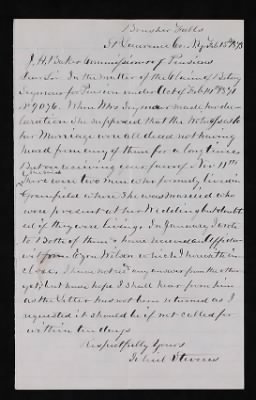 Brasher Falls
St Lawrence Co. N.Y. Feb 15th 1873
J. H. Baker Commissioner of Pensions
Dear Sir. In the matter of the Claim of Betsy
Seymour for Pension under Act of Feb 14th 1871
No 9076. When Mrs Seymour made her de-
claration She supposed that the Witnesses to
her Marriage were all dead not having
heard from any of them for a long time
But on receiving your favor of Nov 11th
there were two men who formerly lived in
Greenfield where She was married who
were present at her Wedding but doubt
ed if they were living. In January I wrote
to Both of them & have received an affida-
vit from Wilson which I herewith in-
close. I have not rec'd any answer from the other
yet, but have hope I shall hear from him
as the letter has not been returned as I
requested it should be if not called for
within ten days
Respectfully Yours
Stevens